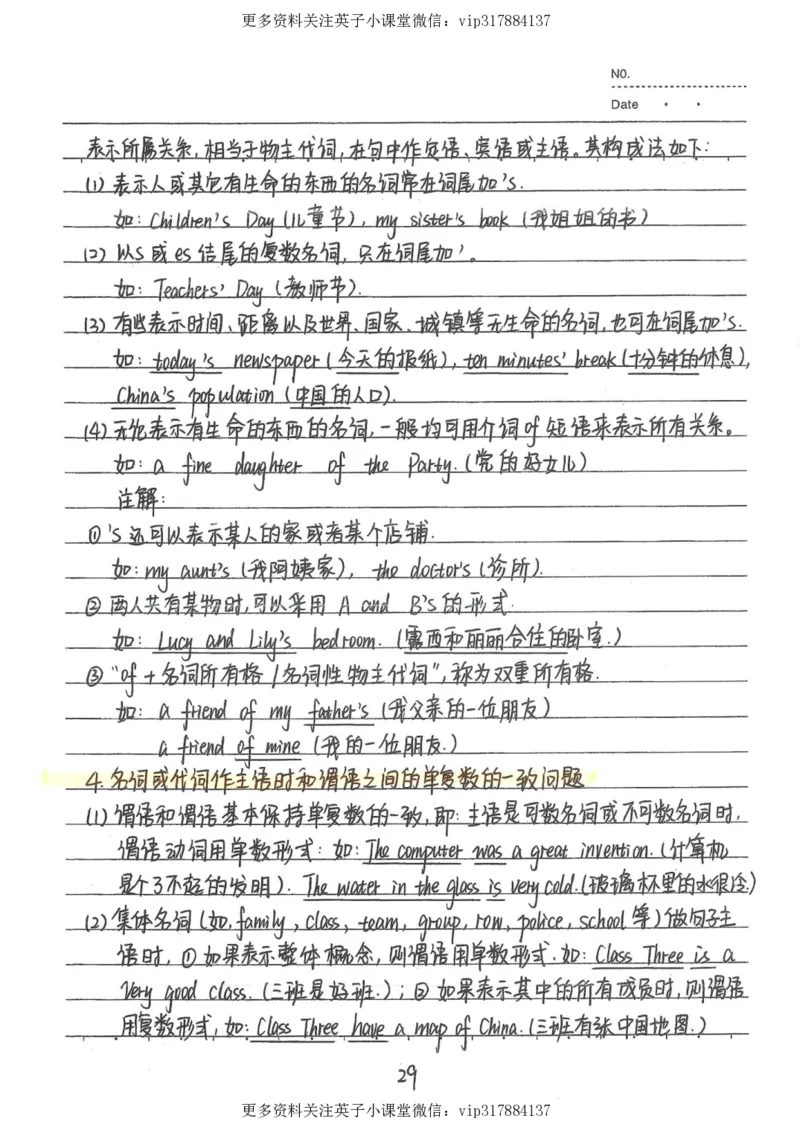 更多资料关注英子小课堂微信：vip317884137
NO.
Date
表示所属关系，相当于物主代词，在句中作定语、宾语或主语。其构成法如下：
(1) 表示人或其它有生命的东西的名词常在词尾加's.
如：Children's Day (儿童节), my sister's book (我姐姐的书)
(2) 以s或es结尾的复数名词，只在词尾加'。
如：Teachers' Day (教师节).
(3) 有些表示时间、距离以及世界、国家、城镇等无生命的名词，也可在词尾加's.
如：today's newspaper (今天的报纸), ten minutes' break (十分钟的休息),
China's population (中国的人口).
(4) 无论表示有生命的东西的名词，一般均可用介词of短语来表示所有关系。
如：a fine daughter of the Party. (党的好女儿)
注解：
①'s还可以表示某人的家或者某个店铺.
如：my aunt's (我阿姨家), the doctor's (诊所).
② 两人共有某物时，可以采用 A and B's的形式.
如：Lucy and Lily's bedroom. (露西和丽丽合住的卧室.)
③ “of + 名词所有格 / 名词性物主代词”, 称为双重所有格.
如：a friend of my father's (我父亲的一位朋友)
a friend of mine (我的一位朋友.)
4. 名词或代词作主语时和谓语之间的单复数的一致问题
(1) 谓语和谓语基本保持单复数的一致，即：主语是可数名词或不可数名词时，
谓语动词用单数形式：如：The computer was a great invention. (计算机
是个了不起的发明). The water in the glass is very cold. (玻璃杯里的水很冷)
(2) 集体名词 (如, family, class, team, group, row, police, school 等) 做句子主
语时，① 如果表示整体概念，则谓语用单数形式. 如：Class Three is a
very good class. (三班是好班.)；② 如果表示其中的所有成员时，则谓语
用复数形式，如：Class Three have a map of China. (三班有张中国地图.)
29
更多资料关注英子小课堂微信：vip317884137